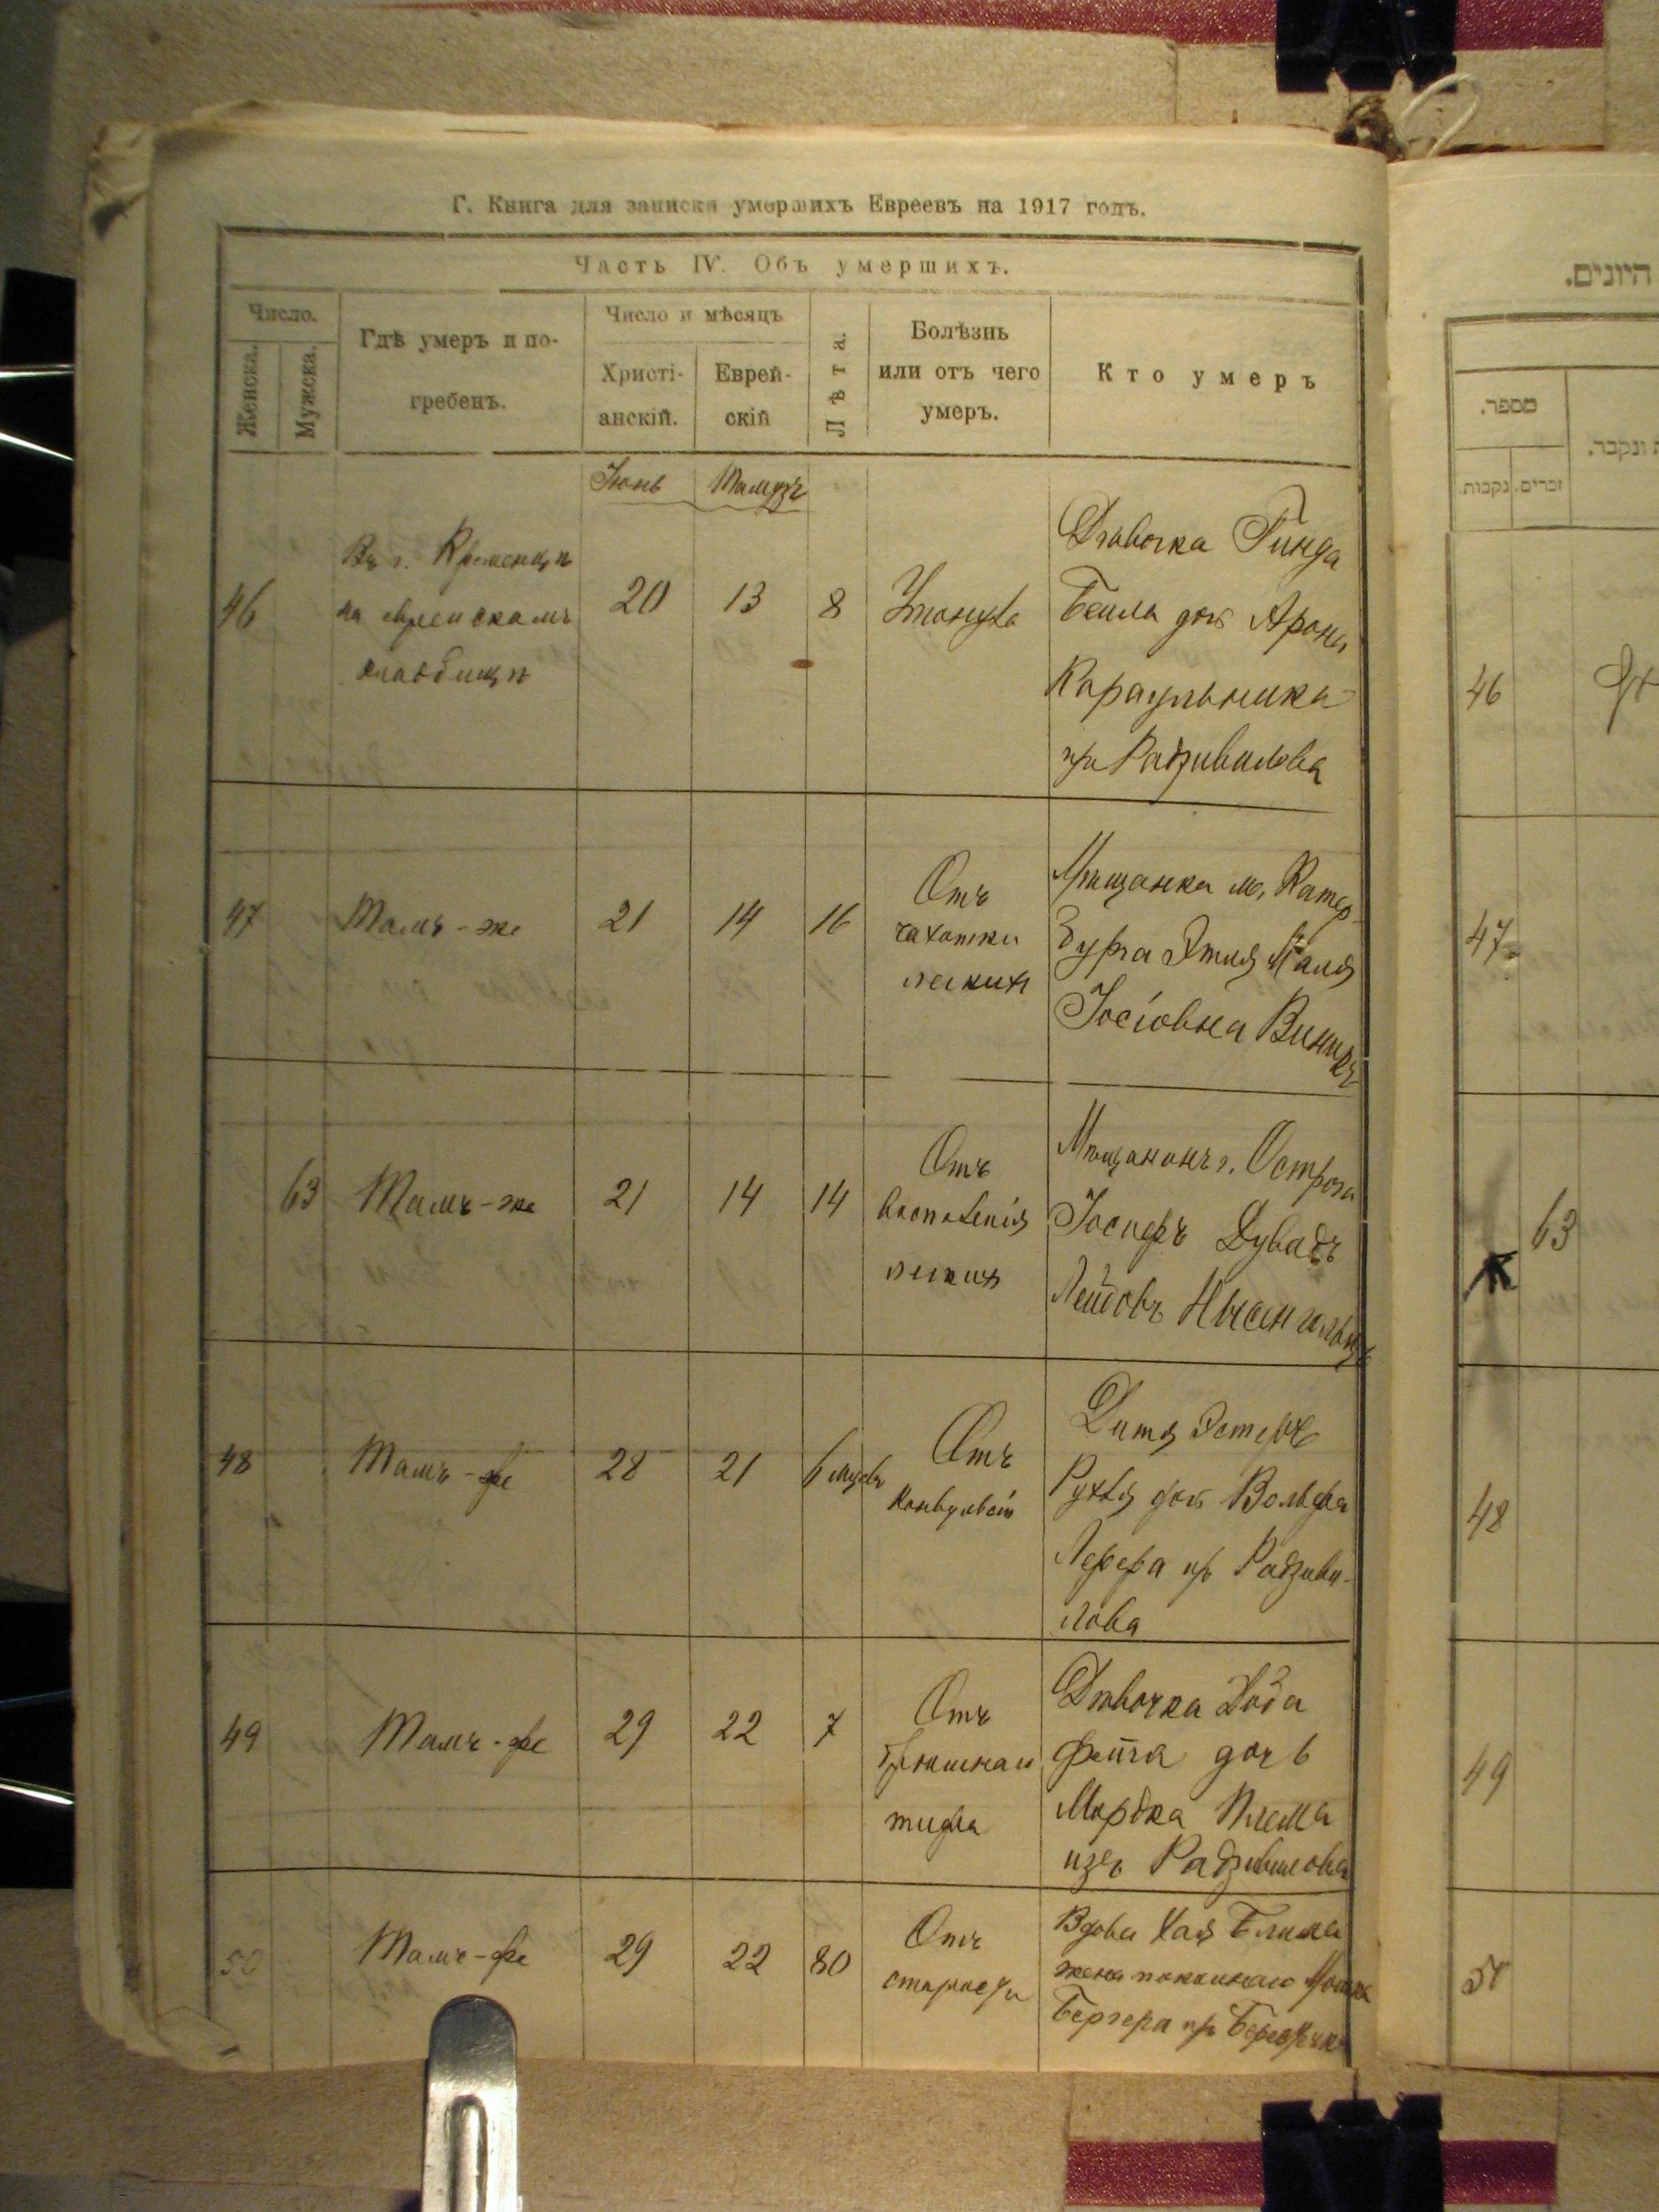 Г. Книга для записки умершихъ Евреевъ на 1917 годъ.
Часть IV. Объ умершихъ.
Число.
Женска.
Мужска.
Гдѣ умеръ и по-
гребенъ.
Число и мѣсяцъ
Христі-
анскій.
Еврей-
скій
Лѣта.
Болѣзнь
или отъ чего
умеръ.
Кто умеръ
Іюнь Тамузъ
46
Въ г. Кременцѣ
на еврейскомъ
кладбищѣ
20 13 8
Утонула
Дѣвочка Гинда
Бейла дочь Арона
Караульника
пр Радзивилова
47 Тамъ-же 21 14 16
Отъ
чахотки
легкихъ
Мѣщанка м. Катер
бурга Этя Маля
Іосіовна Виникъ
63 Тамъ-же 21 14 14
Отъ
воспаленія
легкихъ
Мѣщанинъ г. Острога
Іосифъ Дувидъ
Лейбовъ
48 Тамъ-же 28 21 6 мцевъ
Отъ
конвульсій
Дитя Эстеръ
Рухля дочь Вольфа
Лерера пр Радзиви-
лова
49 Тамъ-же 29 22 7
Отъ
брюшнаго
тифа
Дѣвочка
Фейга дочь
Мордка
изъ Радзивилова
50 Тамъ-же 29 22 80
Отъ
старости
Вдова Хая Блима
жена покойнаго
Бергера пр Берестечка
היונים.
מספר.
נקבות.
זכרים.
ונקבר.
46
47
63
48
49
50